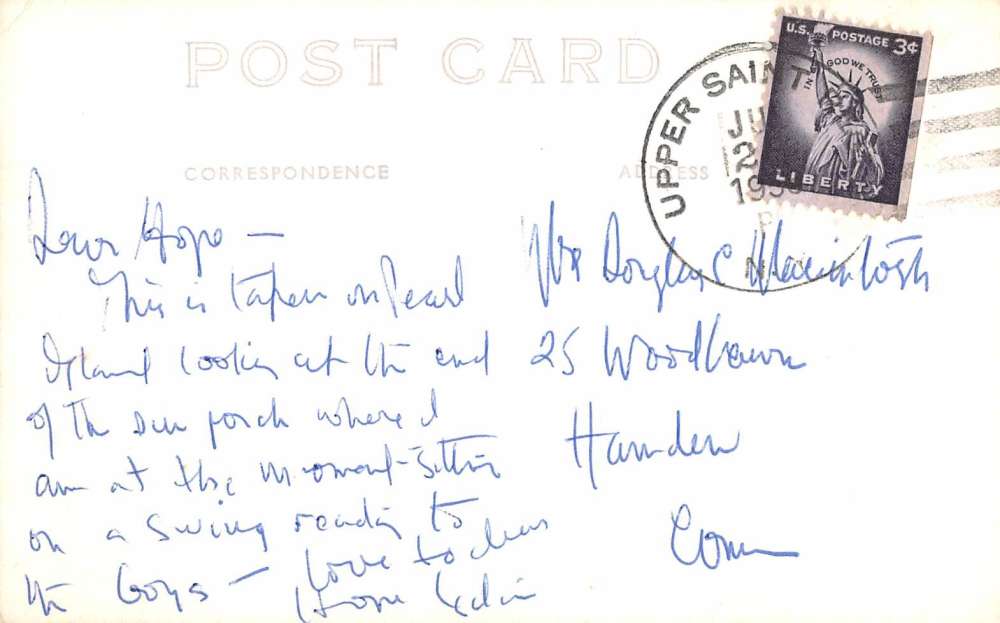 POST CARD
CORRESPONDENCE
ADDRESS
UPPER SAINT
JU
2
195
P
N
U.S. POSTAGE 3¢
IN GOD WE TRUST
LIBERTY
Dear Hope —
This is taken on Pearl
Island looking at the end
of the sun porch where I
am at this moment sitting
on a swing reading to
the boys — love to
Mrs Douglas C Macintosh
25 Woodlawn
Hamden
Conn